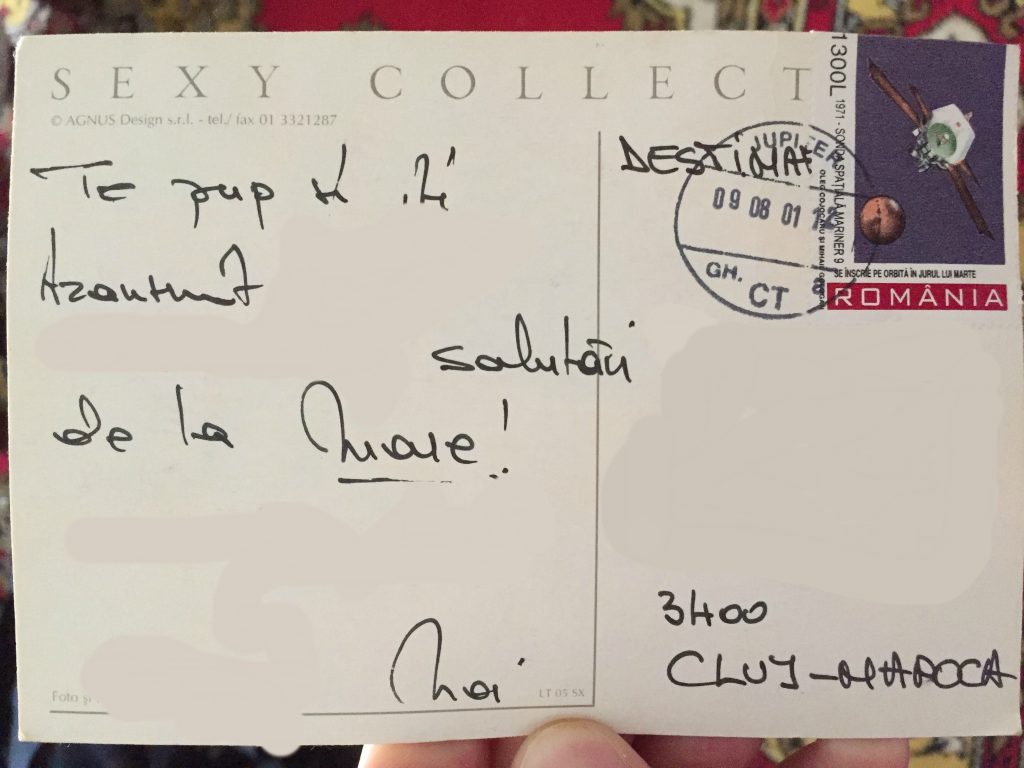 SEXY COLLECT
© AGNUS Design s.r.l. - tel./ fax 01 3321287
Te pup și îți
transmit
salutări
de la Mare!
Noi
Foto și
LT 05 SX
DESTINAT
JUPITER
09 08 01
GH.
CT
1300L
1971 - SONDA SPAȚIALĂ MARINER 9
SE ÎNSCRIE PE ORBITĂ ÎN JURUL LUI MARTE
ROMÂNIA
3400
CLUJ-NAPOCA